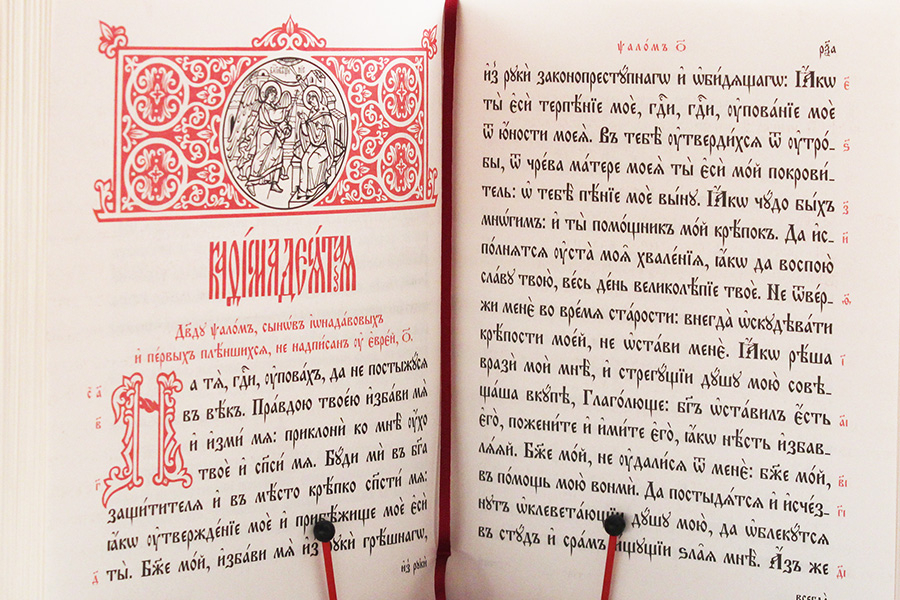 КАѲІСМА ДЕСѦТАѦ
Дв҃ду ѱало́мъ, сынѡ́въ і҆ѡнада́вовыхъ
и҆ пе́рвыхъ плѣ́ншихсѧ, не надпи́санъ ᲂу҆ є҆вре́й, ѻ҃.
На тѧ̀, гдⷭ҇и, ᲂу҆пова́хъ, да не постыжꙋ́сѧ
въ вѣ́къ. Пра́вдою твое́ю и҆зба́ви мѧ̀
и҆ и҆зми́ мѧ: приклонѝ ко мнѣ̀ ᲂу҆́хо
твоѐ и҆ сп҃си́ мѧ. Бꙋ́ди мѝ въ бг҃а
защи́тителѧ и҆ въ мѣ́сто крѣ́пко сп҃сти́ мѧ:
ꙗ҆́кѡ ᲂу҆твержде́нїе моѐ и҆ прибѣ́жище моѐ є҆сѝ
ты̀. Бж҃е мо́й, и҆зба́ви мѧ̀ и҆з̾ рꙋкѝ грѣ́шнагѡ,
и҆з̾ рꙋкѝ
ѱало́мъ ѻ҃ р҃да
и҆з̾ рꙋкѝ законопрестꙋ́пнагѡ и҆ ѡ҆би́дѧщагѡ: Ꙗ҆́кѡ є҃
ты̀ є҆сѝ терпѣ́нїе моѐ, гдⷭ҇и, гдⷭ҇и, ᲂу҆пова́нїе моѐ
ѿ ю҆́ности моеѧ̀. Въ тебѣ̀ ᲂу҆тверди́хсѧ ѿ ᲂу҆тро́- ѕ҃
бы, ѿ чре́ва ма́тере моеѧ̀ ты̀ є҆сѝ мо́й покрови́-
тель: ѡ҆ тебѣ̀ пѣ́нїе моѐ вы́нꙋ. Ꙗ҆́кѡ чꙋ́до бы́хъ з҃
мнѡ́гимъ: и҆ ты̀ помо́щникъ мо́й крѣ́покъ. Да и҆с- и҃
по́лнѧтсѧ ᲂу҆ста̀ моѧ̑ хвале́нїѧ, ꙗ҆́кѡ да воспою̀
сла́вꙋ твою̀, ве́сь де́нь великолѣ́пїе твоѐ. Не ѿве́р- ѳ҃
жи менѐ во вре́мѧ ста́рости: внегда̀ ѡ҆скꙋдѣва́ти
крѣ́пости мое́й, не ѡ҆ста́ви менѐ. Ꙗ҆́кѡ рѣ́ша і҃
вразѝ моѝ мнѣ̀, и҆ стрегꙋ́щїи дꙋ́шꙋ мою̀ совѣ-
ща́ша вкꙋ́пѣ, Глаго́люще: бг҃ъ ѡ҆ста́вилъ є҆́сть а҃і
є҆го̀, пожени́те и҆ и҆ми́те є҆го̀, ꙗ҆́кѡ нѣ́сть и҆збав-
лѧ́ѧй. Бж҃е мо́й, не ᲂу҆дали́сѧ ѿ менѐ: бж҃е мо́й, в҃і
въ по́мощь мою̀ вонмѝ. Да постыдѧ́тсѧ и҆ и҆сче́з- г҃і
нꙋтъ ѡ҆клевета́ющїи дꙋ́шꙋ мою̀, да ѡ҆блекꙋ́тсѧ
въ стꙋ́дъ и҆ сра́мъ и҆́щꙋщїи ѕла̑ѧ мнѣ̀. А҆́зъ же д҃і
всегда̀